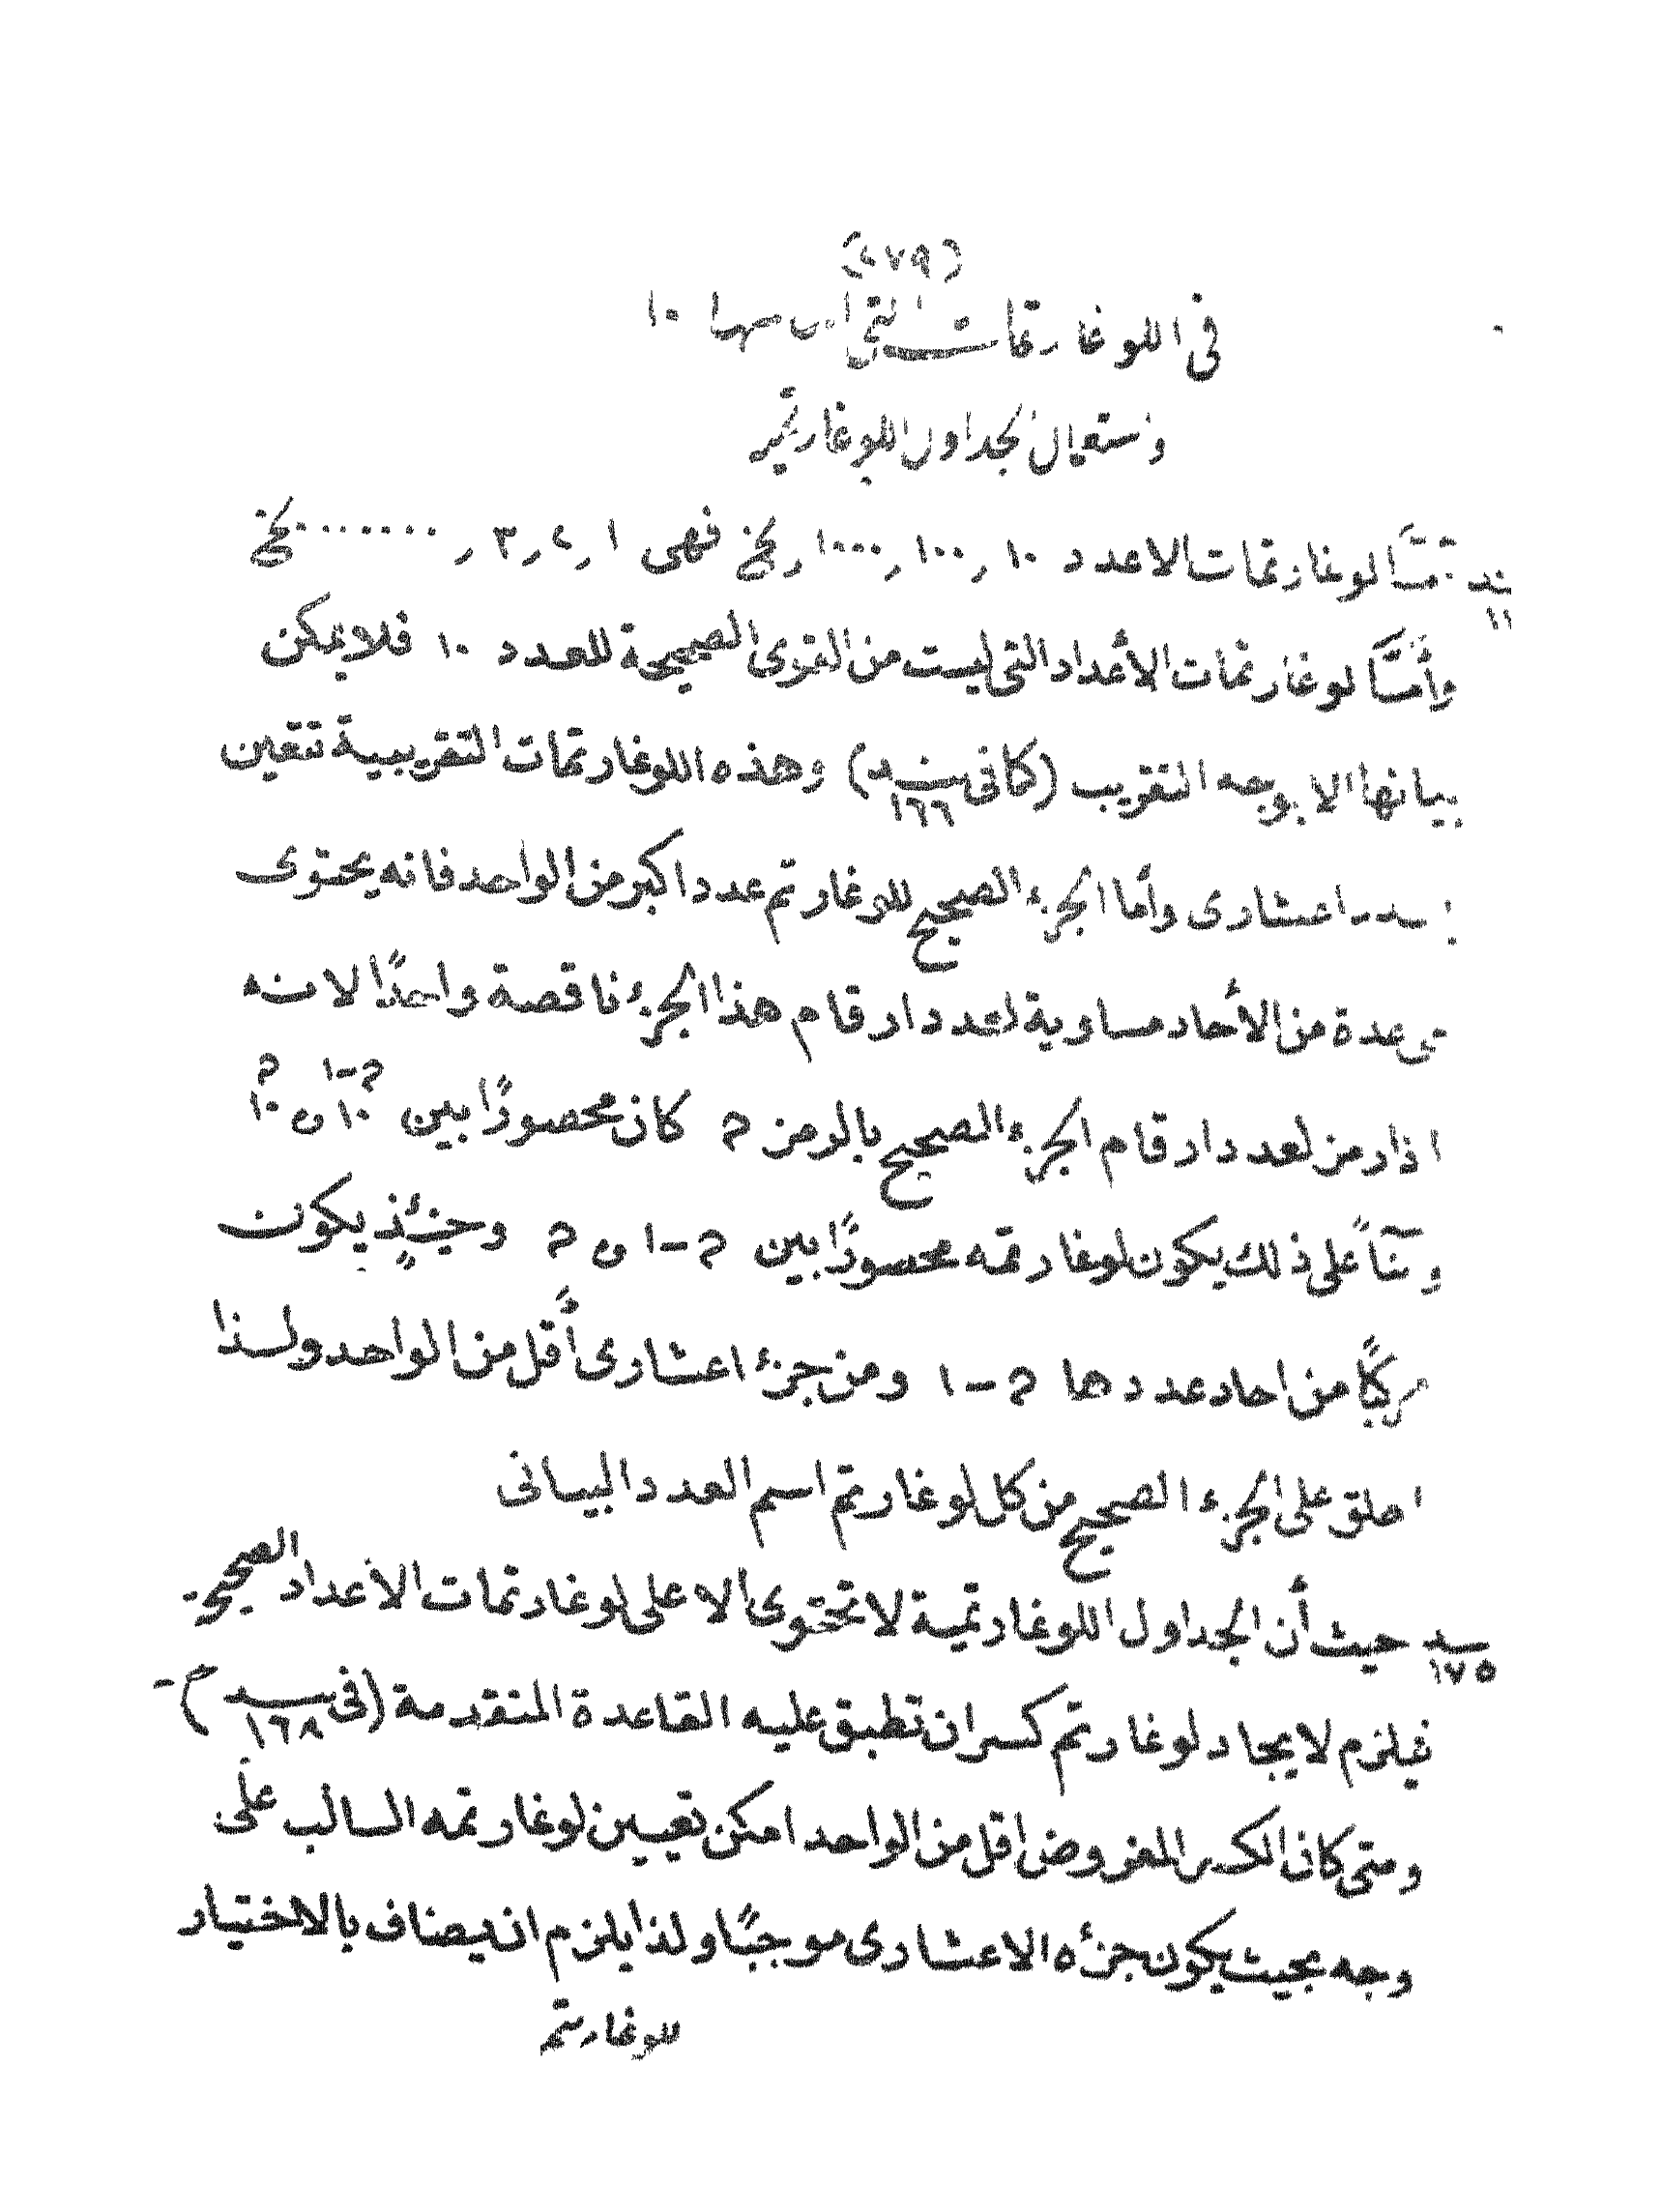 (٢٧٩)
فى اللوغارتمات التى اساسها ١٠
واستعمال الجداول اللوغارتميه
بند أما لوغارتمات الاعدد ١٠ ر ١٠٠ ر ١٠٠٠ ر الخ فهى ١ ر ٢ ر ٣ ر ....... الخ
وأمَّا لوغارتمات الأعداد التى ليست من القوى الصحيحة للعدد ١٠ فلا يمكن
بيانها الا بوجه التقريب (كما فى بند ١٦٦) وهذه اللوغارتمات التقريبية تتعين
اعشارى وأما الجزء الصحيح للوغارتم عدد اكبر من الواحد فانه يحتوى
على عدة من الأحاد مساوية لعدد ارقام هذا الجزء ناقصة واحدًا لانه
اذا رمز لعدد ارقام الجزء الصحيح بالرمز م كان محصورًا بين ١٠^(م-١) و ١٠^م
وبنآءً على ذلك يكون لوغارتمه محصورًا بين م-١ و م وحينئذٍ يكون
مركبًا من احاد عددها م-١ ومن جزء اعشارى أقل من الواحد ولذا
اطلق على الجزء الصحيح من كل لوغارتم اسم العدد البيانى
بند ١٧٥ حيث أن الجداول اللوغارتمية لا تحتوى الا على لوغارتمات الأعداد الصحيحه
فيلزم لايجاد لوغارتم كسر ان تطبق عليه القاعدة المتقدمة (فى بند ١٦٨)
ومتى كان الكسر المفروض اقل من الواحد امكن تعيين لوغارتمه السالب على
وجه بحيث يكون جزءه الاعشارى موجبًا ولذا يلزم ان يضاف بالاختيار
للوغارتم